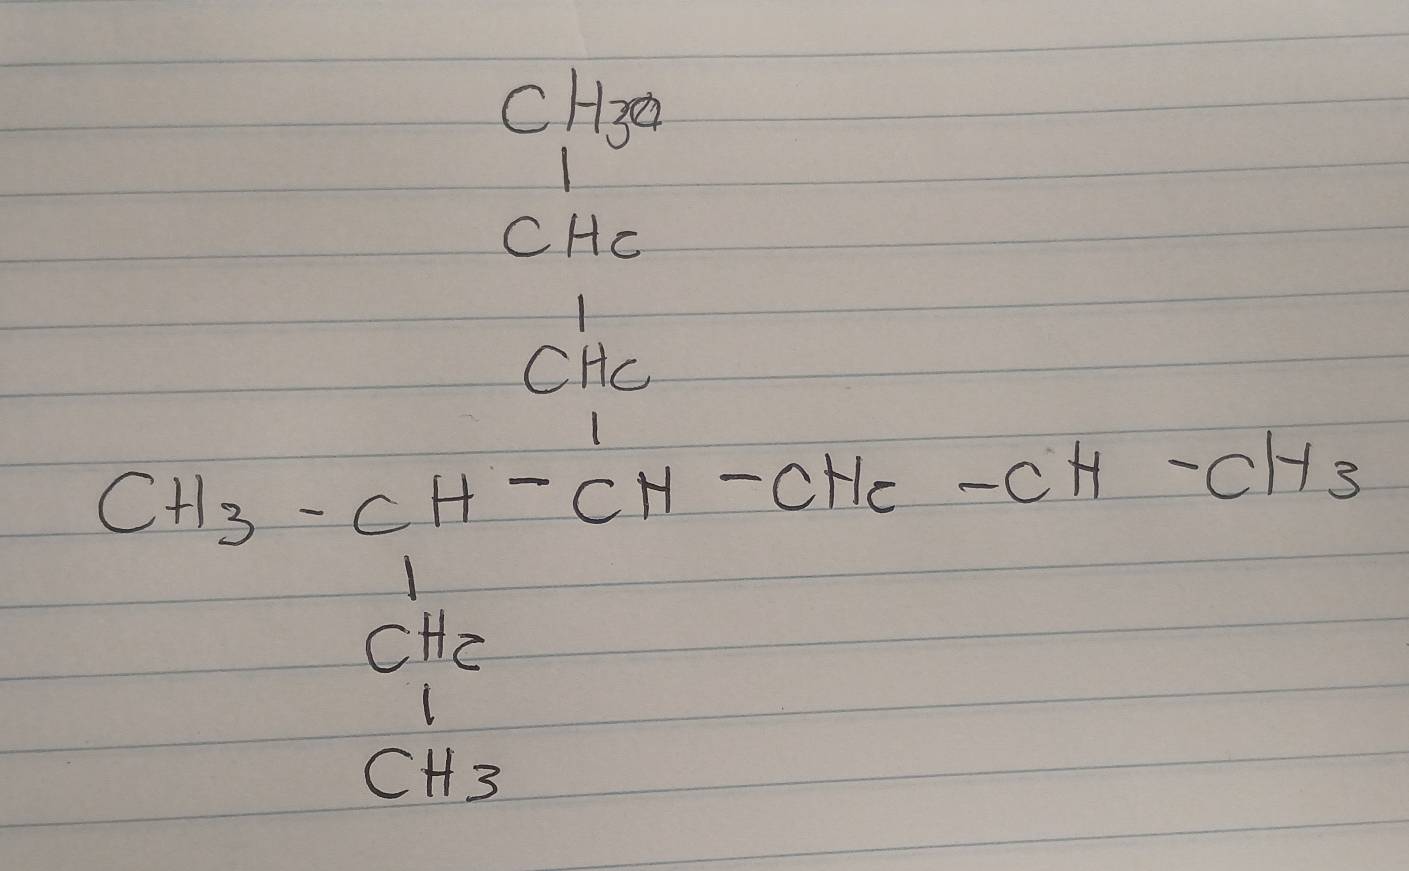 CH3
|
CH2
|
CH2
|
CH3 - CH - CH - CH2 - CH - CH3
|
CH2
|
CH3